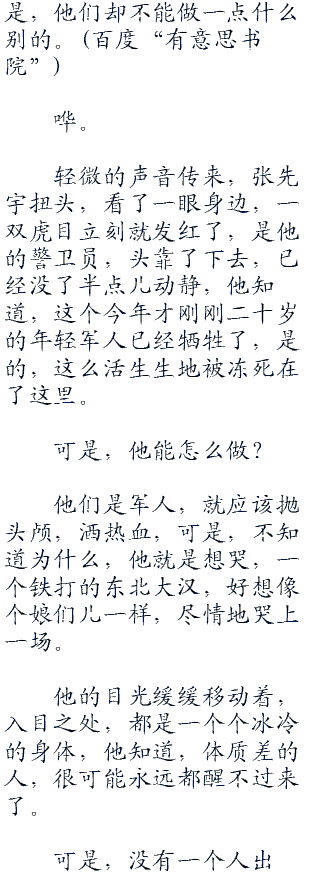 是，他们却不能做一点什么
别的。(百度“有意思书
院”)
哗。
轻微的声音传来，张先
宇扭头，看了一眼身边，一
双虎目立刻就发红了，是他
的警卫员，头靠了下去，已
经没了半点儿动静，他知
道，这个今年才刚刚二十岁
的年轻军人已经牺牲了，是
的，这么活生生地被冻死在
了这里。
可是，他能怎么做？
他们是军人，就应该抛
头颅，洒热血，可是，不知
道为什么，他就是想哭，一
个铁打的东北大汉，好想像
个娘们儿一样，尽情地哭上
一场。
他的目光缓缓移动着，
入目之处，都是一个个冰冷
的身体，他知道，体质差的
人，很可能永远都醒不过来
了。
可是，没有一个人出